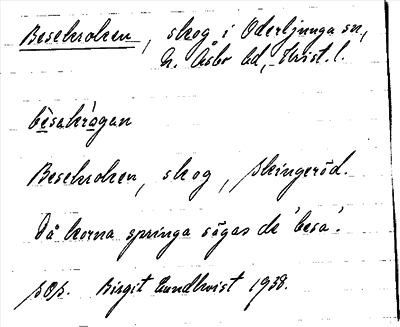 Besekroken, skog i Oderljunga sn,
N. Åsbo hd, Krist. l.
bèsakrågan
Besekroken, skog, Skingeröd.
Då korna springa sägas de 'besa'.
Birgit Lundkvist 1938.